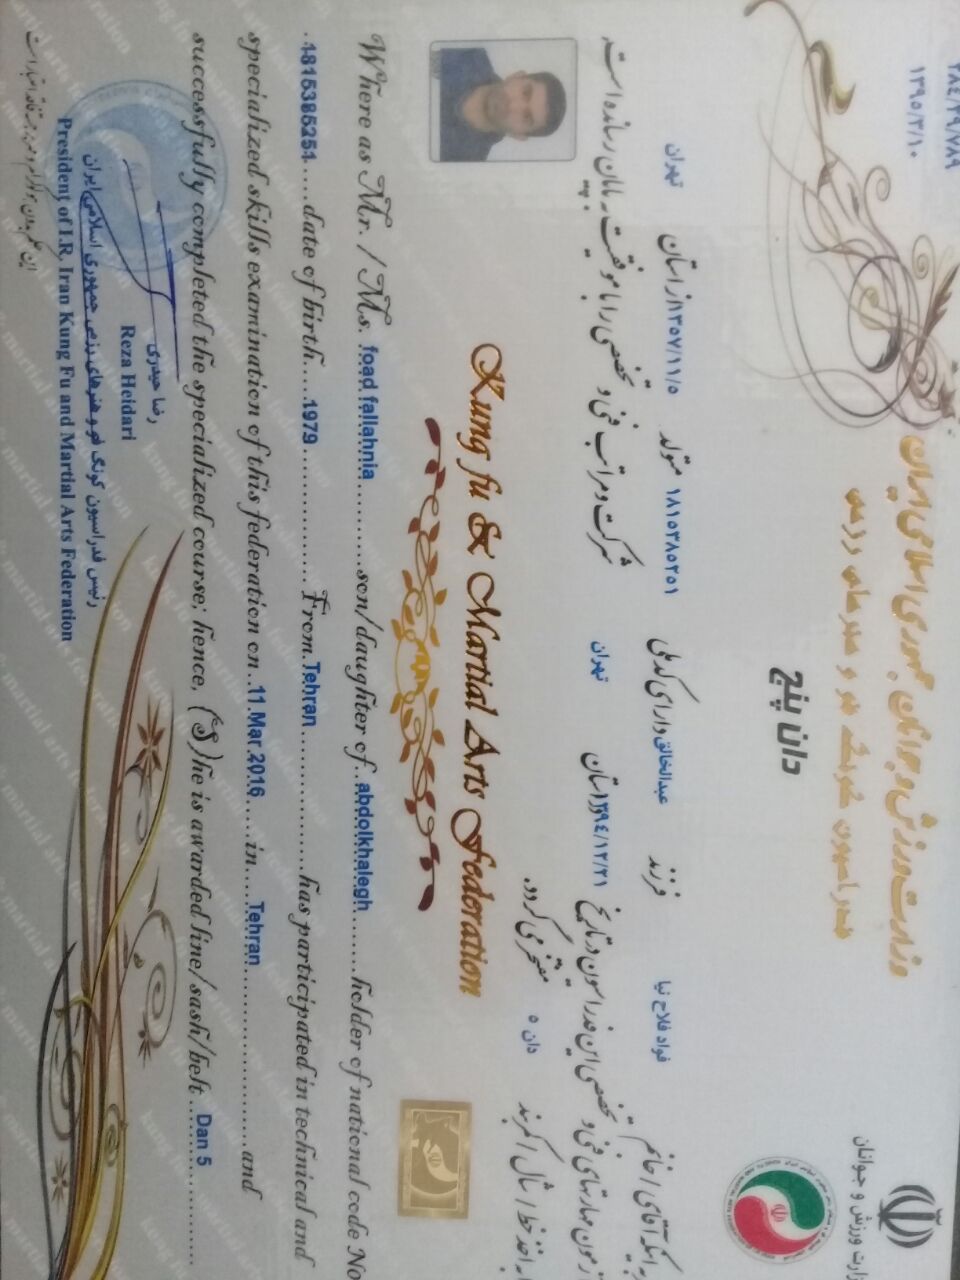 ۲۸٤/۲۹/۷۸۹
۱۳۹۵/۳/۱۰
وزارت ورزش و جوانان جمهوری اسلامی ایران
فدراسیون کونگ فو و هنرهای رزمی
وزارت ورزش و جوانان
دان پنج
اینکه آقای / خانم فواد فلاح نیا فرزند عبدالخالق دارای کد ملی ۱۸۱۵۳۸۵۲۵۱ متولد ۱۳۵۷/۱۱/۵ از استان تهران
آزمون مهارتهای فنی و تخصصی این فدراسیون در تاریخ ۱۳۹٤/۱۲/۲۱ در استان تهران شرکت و مراتب فنی و تخصصی را با موفقیت به پایان رسانده است
به اخذ خط / شال / کمربند دان ۵ مفتخر می گردد.
Kung fu & Martial Arts Federation
Where as Mr. / Ms. foad fallahnia son/daughter of abdolkhalegh holder of national code No
1815385251 date of birth 1979 From Tehran has participated in technical and
specialized skills examination of this federation on 11 Mar 2016 in Tehran and
successfully completed the specialized course; hence, (S)he is awarded line/sash/belt Dan 5
رضا حیدری
Reza Heidari
رئیس فدراسیون کونگ فو و هنرهای رزمی جمهوری اسلامی ایران
President of I.R. Iran Kung Fu and Martial Arts Federation